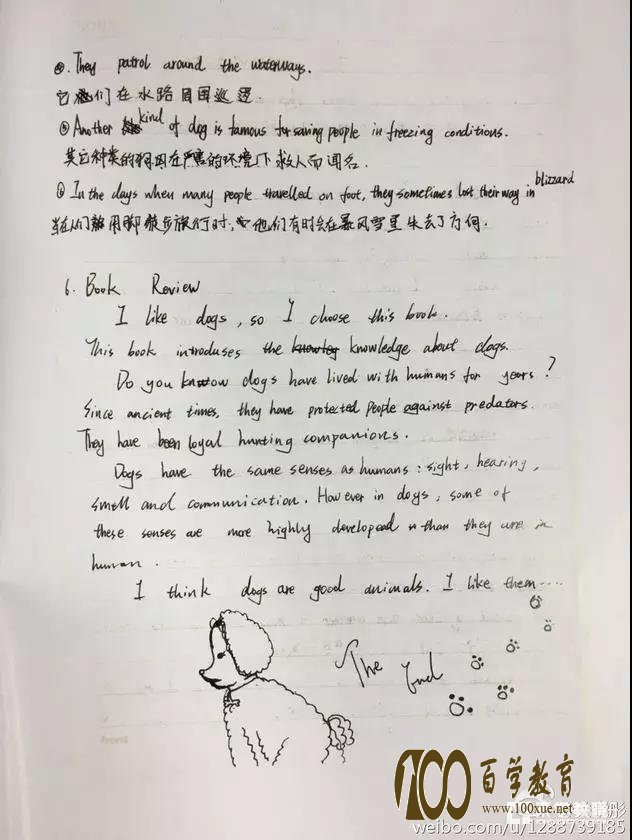 ④. They patrol around the waterways.
它们在水路周围巡逻.
⑤ Another kind of dog is famous for saving people in freezing conditions.
其它种类的狗因在严寒的环境下救人而闻名.
⑥ In the days when many people travelled on foot, they sometimes lost their way in blizzard
当在人们用脚徒步旅行时, 他们有时会在暴风雪里失去了方向.
6. Book Review
I like dogs, so I choose this book.
This book introduses the knowledge about dogs.
Do you know dogs have lived with humans for years?
Since ancient times, they have protected people against predators.
They have been loyal hunting companions.
Dogs have the same senses as humans: sight, hearing,
smell and communication. However in dogs, some of
these senses are more highly developed than they are in
human.
I think dogs are good animals. I like them.....
The End
100 百学教育
www.100xue.net
weibo.com/u/1288739185